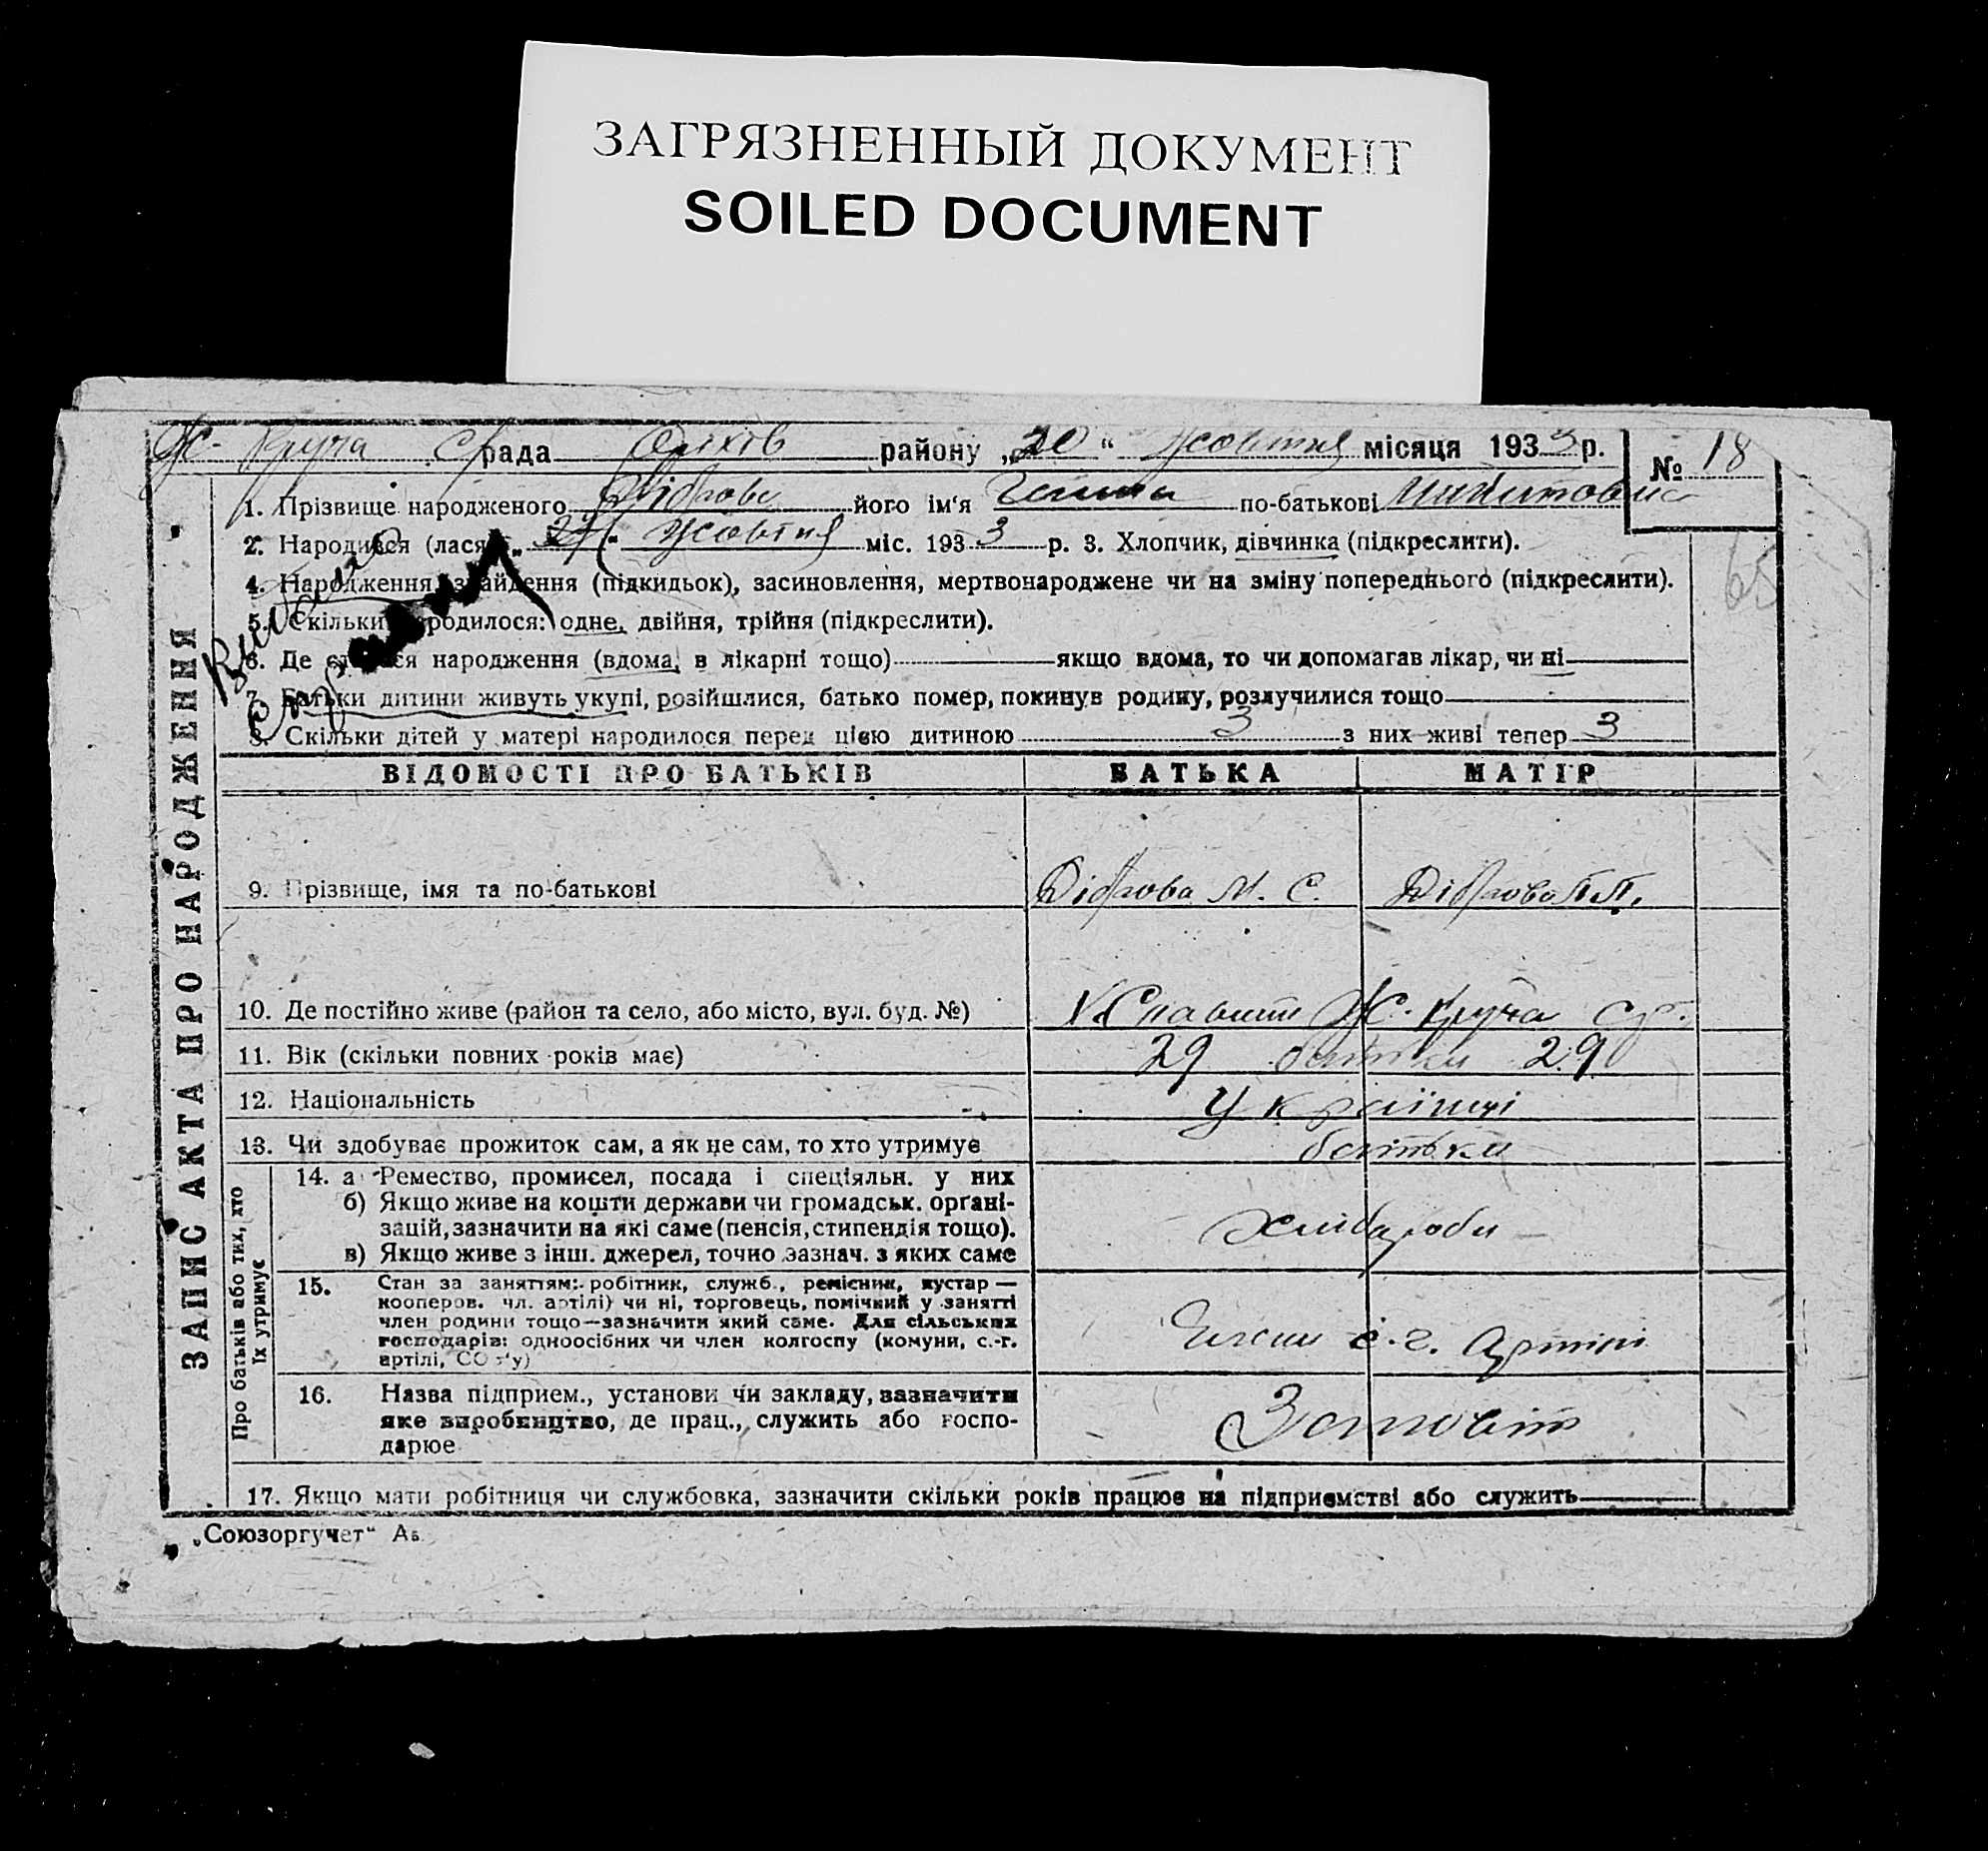 ЗАГРЯЗНЕННЫЙ ДОКУМЕНТ
SOILED DOCUMENT
Ж. Круча с/рада Оріхів району „20“ жовтня місяця 1933 р. № 18
1. Прізвище народженого Діброва його ім‘я Галина по-батькові Микитовна
2. Народився (лася) „ “ жовтня міс. 1933 р. 3. Хлопчик, дівчинка (підкреслити).
4. Народження, знайдення (підкидьок), засиновлення, мертвонароджене чи на зміну попереднього (підкреслити).
65
5. Скільки народилося: одне, двійня, трійня (підкреслити).
6. Де сталося народження (вдома, в лікарні тощо) якщо вдома, то чи допомагав лікар, чи ні
7. Батьки дитини живуть укупі, розійшлися, батько помер, покинув родину, розлучилися тощо
8. Скільки дітей у матері народилося перед цією дитиною 3 з них живі тепер 3
ЗАПИС АКТА ПРО НАРОДЖЕННЯ
ВІДОМОСТІ ПРО БАТЬКІВ БАТЬКА МАТІР
9. Прізвище, імя та по-батькові Діброва М. С. Діброва П.П.
10. Де постійно живе (район та село, або місто, вул. буд. №) Ж. Круча с/р.
11. Вік (скільки повних років має) 29 29
12. Національність Українці
13. Чи здобуває прожиток сам, а як не сам, то хто утримує батьки
Про батьків або тих, хто їх утримує
14. а Ремество, промисел, посада і спеціяльн. у них
б) Якщо живе на кошти держави чи громадськ. органі-
зацій, зазначити на які саме (пенсія, стипендія тощо). Хлібороби
в) Якщо живе з інш. джерел, точно зазнач. з яких саме
15. Стан за заняттям: робітник, служб., ремісник, кустар —
кооперов. чл. артілі) чи ні, торговець, помічний у занятті
член родини тощо—зазначити який саме. Для сільських
господарів: одноосібних чи член колгоспу (комуни, с.-г. Члени с.-г. Артілі
артілі, СОЗ'у)
16. Назва підприєм., установи чи закладу, зазначити
яке виробництво, де прац., служить або госпо- Заповіт
дарює
17. Якщо мати робітниця чи службовка, зазначити скільки років працює на підприємстві або служить
„Союзоргучет“